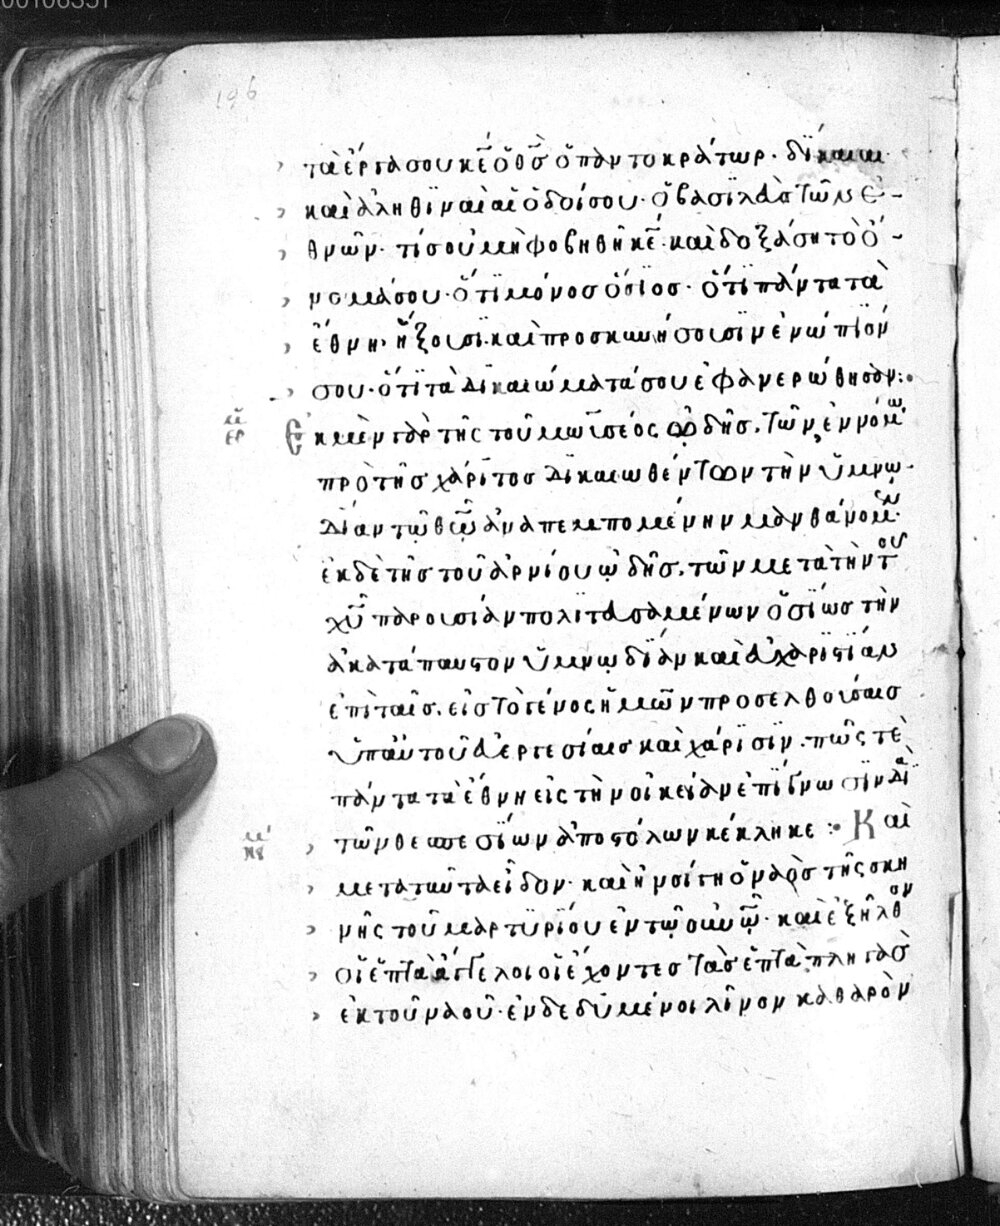 00106351
196
τὰ ἔργα σου κε ὁ θσ ὁ παντοκράτωρ· δίκαιαι
καὶ ἀληθιναὶ αἱ ὁδοί σου· ὁ βασιλεὺς τῶν ἐ-
θνῶν· τίς οὐ μὴ φοβηθῆ κε· καὶ δοξάση τὸ ὄ-
νομά σου· ὅτι μόνος ὅσιος· ὅτι πάντα τὰ
ἔθνη· ἥξουσι καὶ προσκυνήσουσϊν ἐνώπϊόν
σου· ὅτι τὰ δικαιώματά σου ἐφανερώθησαν:
ἑρ Ἐκ μὲν γὰρ τῆς τοῦ μωϊσέος ὠδῆς. τῶν ἐν νόμω
πρὸ τῆς χάριτος δικαιωθέντων τὴν ὑμνω-
δίαν τῶ θεῶ ἀναπεμπομένην μανθάνομεν·
ἐκ δὲ τῆς τοῦ ἀρνίου ὠδῆς. τῶν μετὰ τὴν τοῦ
χυ παρουσίαν πολιτευσαμένων ὁσίως τὴν
ἀκατάπαυστον ὑμνωδίαν καὶ εὐχαριστίαν
ἐπὶ ταῖς. εἰς τὸ γένος ἡμῶν προσελθούσαις
ὑπ αὐτοῦ εὐεργεσίαις καὶ χάρισϊν. πῶς τὲ
πάντα τὰ ἔθνη εἰς τὴν οἰκείαν ἐπίγνωσϊν διὰ
κει τῶν θεσπεσίων ἀποστόλων κέκληκε: Καὶ
μετὰ ταῦτα εἶδον· καὶ ἠνοίγη ὁ ναὸς τῆς σκη
νῆς τοῦ μαρτυρίου ἐν τῶ οὐνῶ· καὶ ἐξῆλθον
οἱ ἑπτὰ ἄγγελοι οἱ ἔχοντες τὰς ἑπτὰ πληγὰς
ἐκ τοῦ ναοῦ· ἐνδεδυμένοι λίνον καθαρὸν